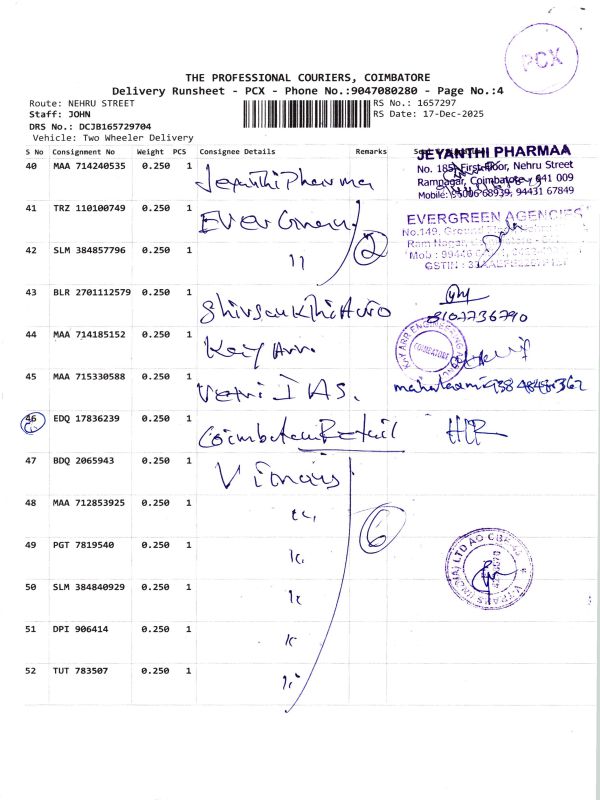 PCX
THE PROFESSIONAL COURIERS, COIMBATORE
Delivery Runsheet - PCX - Phone No.:9047080280 - Page No.:4
Route: NEHRU STREET
RS No.: 1657297
Staff: JOHN
RS Date: 17-Dec-2025
DRS No.: DCJB165729704
Vehicle: Two Wheeler Delivery
S No Consignment No Weight PCS Consignee Details Remarks
40 MAA 714240535 0.250 1 Jeyanthi Pharma
JEYANTHI PHARMAA
No. 185, First Floor, Nehru Street
Ramnagar, Coimbatore - 641 009
Mobile: 95006 68939, 94431 67849
41 TRZ 110100749 0.250 1 Evergreen
EVERGREEN AGENCIES
No.149, Ground
Ram Nagar,
Mob : 99446
GSTIN :
42 SLM 384857796 0.250 1 11 2
43 BLR 2701112579 0.250 1 Shivsakthi Auto
8107736790
44 MAA 714185152 0.250 1 Kay Arr
KAY ARR ENGINEERING
COIMBATORE
45 MAA 715330588 0.250 1 IAS.
46 EDQ 17836239 0.250 1 Coimbatore Retail
47 BDQ 2065943 0.250 1
48 MAA 712853925 0.250 1 6
49 PGT 7819540 0.250 1
V-TRANS (INDIA) LTD
50 SLM 384840929 0.250 1
51 DPI 906414 0.250 1
52 TUT 783507 0.250 1